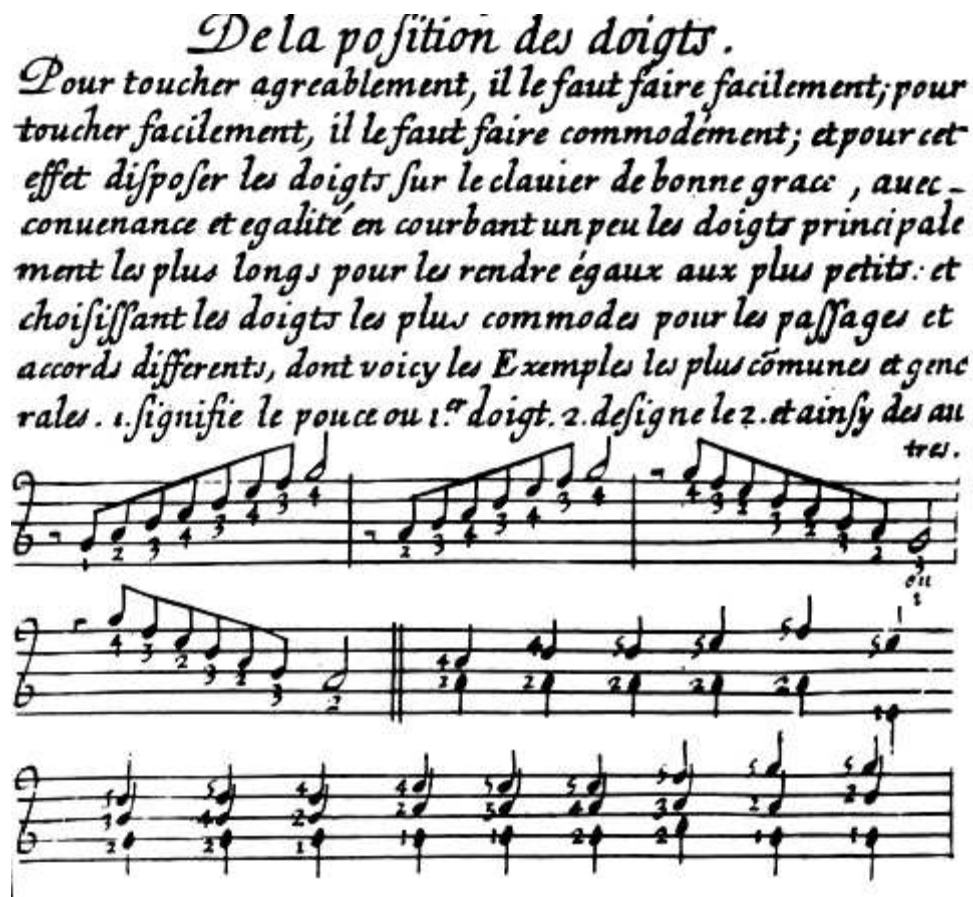 De la poſition des doigts.
Pour toucher agreablement, il le faut faire facilement; pour
toucher facilement, il le faut faire commodément; et pour cet
effet diſpoſer les doigts ſur le clauier de bonne grace, auec
conuenance et egalité en courbant un peu les doigts principale
ment les plus longs pour les rendre égaux aux plus petits: et
choiſiſſant les doigts les plus commodes pour les paſſages et
accords differents, dont voicy les Exemples les plus cōmunes et gene
rales. 1. ſignifie le pouce ou 1.er doigt. 2. deſigne le 2. et ainſy des au
tres.
1 2 3 4 3 4 3 4 2 3 4 3 4 3 4 4 3 2 3 2 3 2 3
ou
4 3 2 3 2 3 2